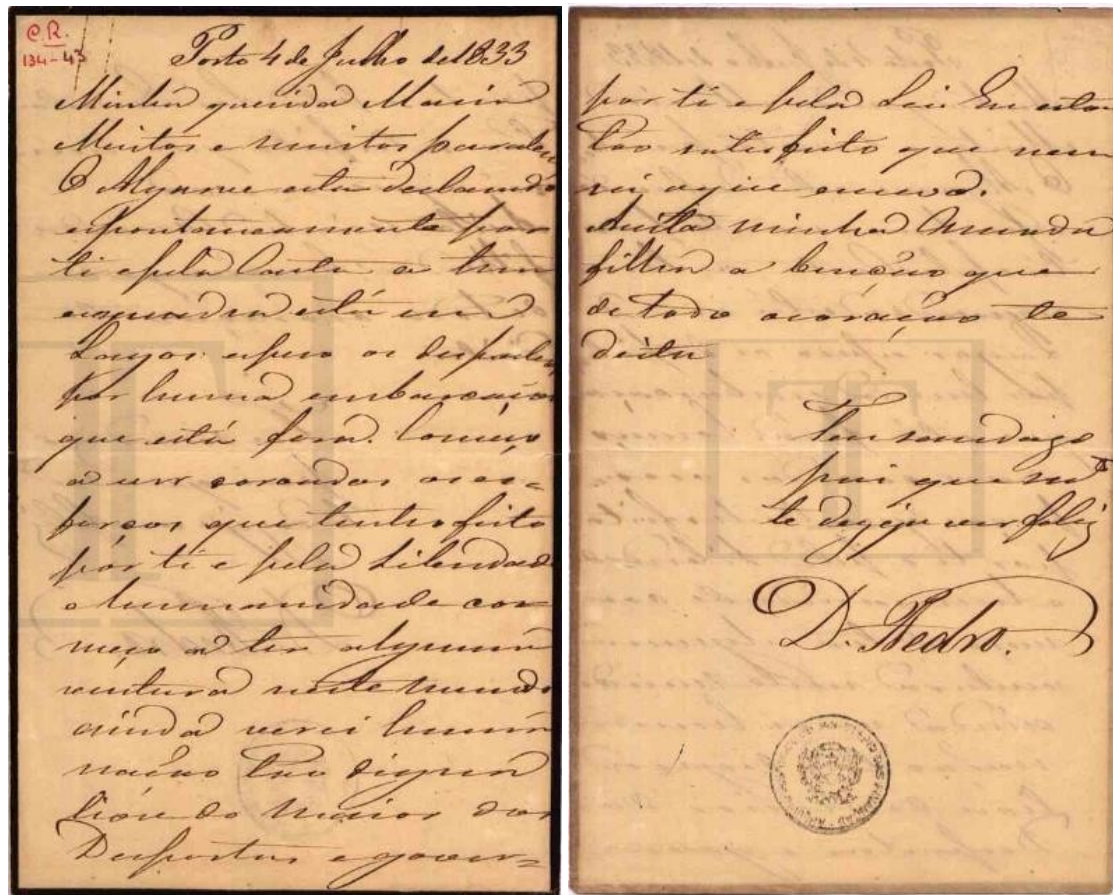 C.R.
134-43
Porto 4 de Julho de 1833
Minha querida Maria
Muitos e muitos parabens
O Algarve está declarando
espontaneamente por
ti e pela Carta a tua
esquadra está em
Lagos espero os despachos
por huma embarcação
que está fora. Começo
a ver coroados os es=
forços que tenho feito
por ti e pela liberdade
e humanidade co=
meço a ter alguma
ventura neste mundo
ainda verei huma
nação tão digna
livre do maior dos
Despotas e gover=
por ti e pela Lei Eu estou
tão satisfeito que nem
sei o que escrevo.
Aceita minha Amada
filha a benção que
de todo o coração te
deita
Teu saudozo
pai que m.to
te dezeja ver feliz
D. Pedro.